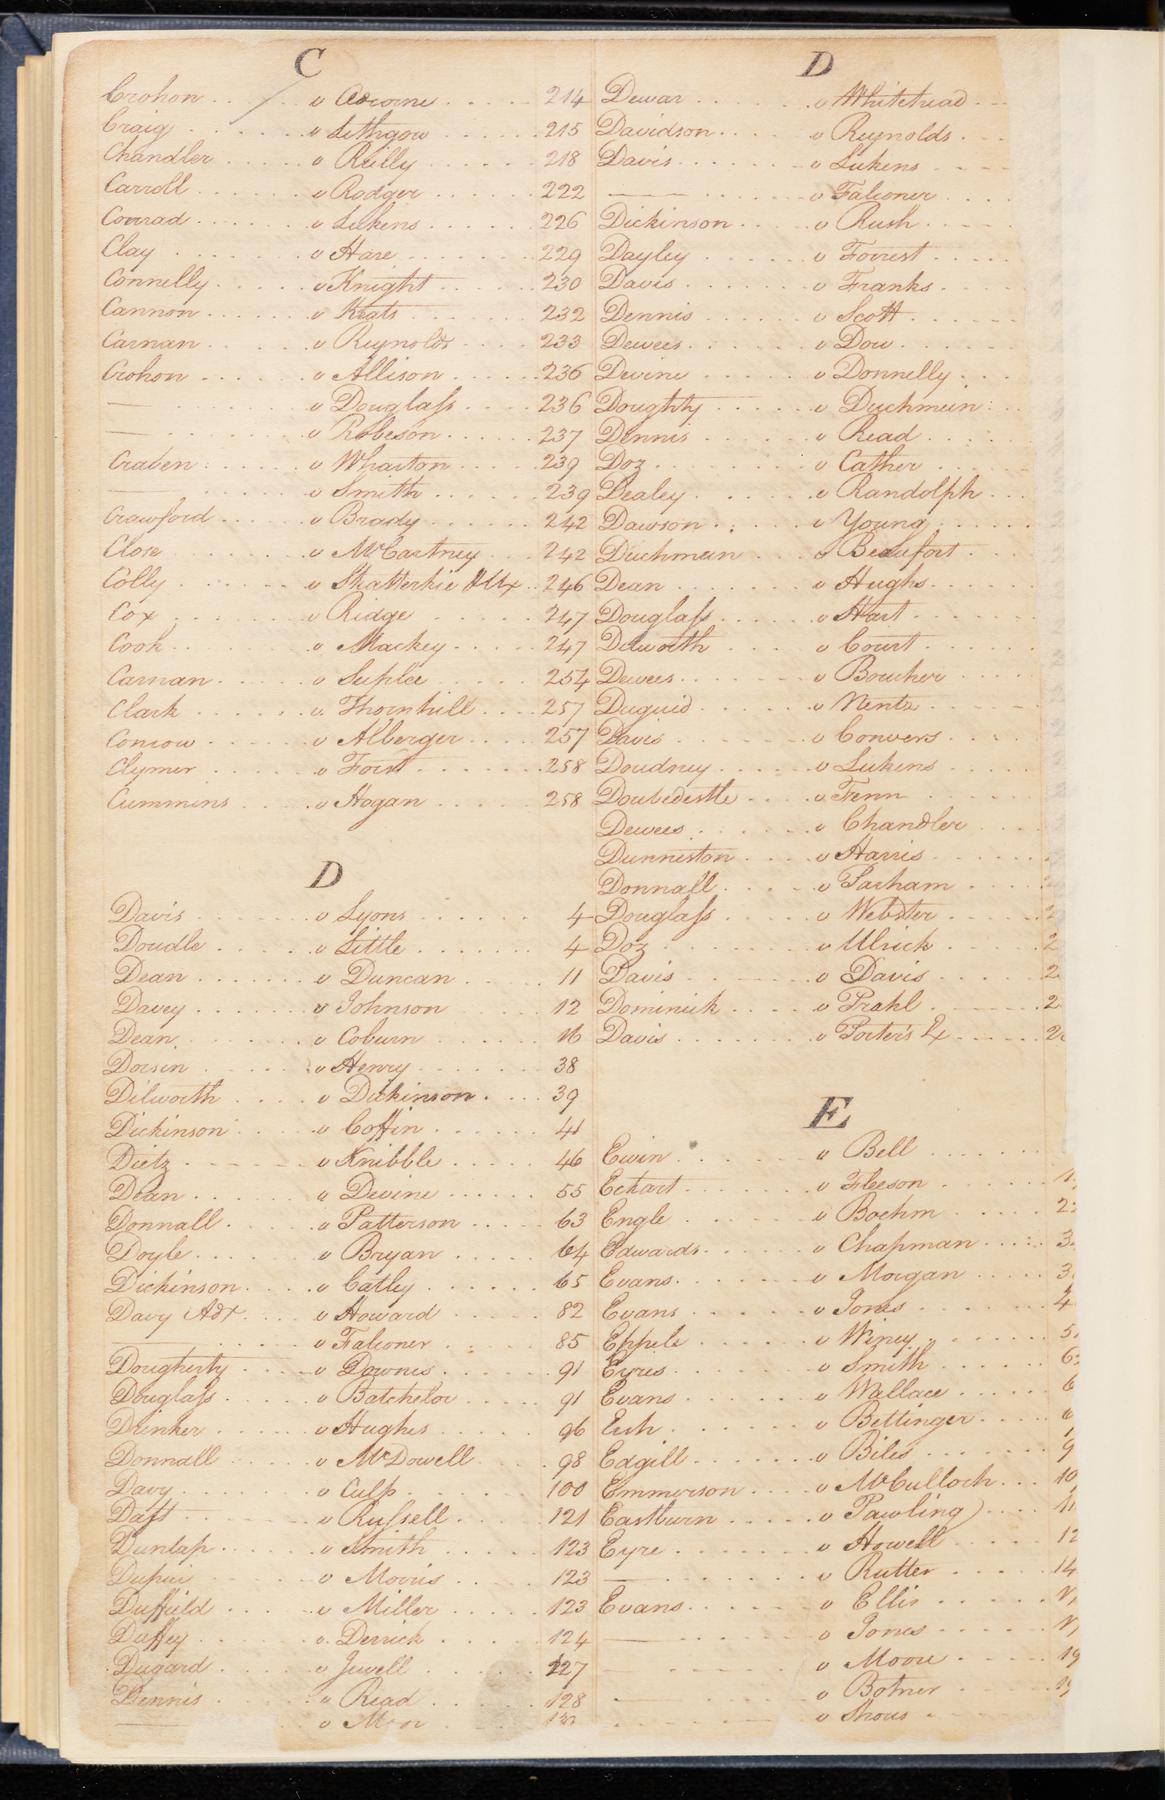 C
Crohon v 214
Craig v Lithgow 215
Chandler v Reilly 218
Carroll v Rodger 222
Conrad v Lukens 226
Clay v Hare 229
Connelly v Knight 230
Cannon v Keats 232
Carnan v Reynolds 233
Crohon v Allison 236
— v Douglass 236
— v Robeson 237
Craven v Wharton 239
— v Smith 239
Crawford v Brady 242
Close v McCartney 242
Colly v 246
Cox v Ridge 247
Cook v Mackey 247
Carnan v Suplee 254
Clark v Thornhill 257
Conrow v Alberger 257
Clymer v 258
Cummins v Hogan 258
D
Davis v Lyons 4
Doudle v Little 4
Dean v Duncan 11
Davey v Johnson 12
Dean v Coburn 16
Dorsin v Henry 38
Dilworth v Dickinson 39
Dickinson v Coffin 41
Dietz v Knibble 46
Dean v Devine 55
Donnall v Patterson 63
Doyle v Bryan 64
Dickinson v Catley 65
Davy Adx v Howard 82
— v Falconer 85
Dougherty v Downes 91
Douglass v Batchelor 91
Drinker v Hughes 96
Donnall v McDowell 98
Davy v Culp 100
Daft v Russell 121
Dunlap v Smith 123
Dupui v Morris 123
Duffield v Miller 123
Duffey v Derrick 124
Dugard v Jewell 127
Dennis v Read 128
— v
D
Dewar v Whitehead
Davidson v Reynolds
Davis v Lukens
— v Falconer
Dickinson v Rush
Dayley v Forrest
Davis v Franks
Dennis v Scott
Dewees v Dow
Devine v Donnelly
Doughty v Duchmein
Dennis v Read
Doz v Cather
Dealey v Randolph
Dawson v Young
Duchmein v Beaufort
Dean v Hughs
Douglass v Hart
Dilworth v Court
Dewees v Boucher
Duguid v Wentz
Davis v Convers
Doudney v Lukens
Doubedestle v Fenn
Dewees v Chandler
Dunneston v Harris
Donnall v Parham
Douglass v Webster 2
Doz v Ulrick 2
Davis v Davis 2
Dominick v Prahl 2
Davis v Porter's Ex 2
E
Ewin v Bell
Eckart v Fleeson 1
Engle v Boehm 2
Edwards v Chapman 3
Evans v Morgan 3
Evans v Jones 4
Eppele v Winey 5
Eyres v Smith 6
Evans v Wallace 6
Esh v Bettinger
Edgill v Biles 9
Emmerson v McCulloch 10
Eastburn v Pawling 11
Eyre v Howell 12
— v Rutter 14
Evans v Ellis
— v Jones
— v Moore 19
— v Botner 19
v Shous